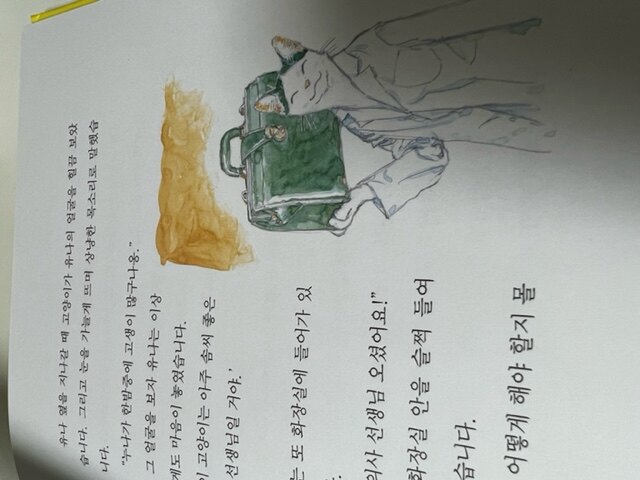 유나 옆을 지나갈 때 고양이가 유나의 얼굴을 힐끔 보았
습니다. 그리고 눈을 가늘게 뜨며 상냥한 목소리로 말했습
니다.
“누나가 한밤중에 고생이 많구나옹.”
그 얼굴을 보자 유나는 이상
게도 마음이 놓였습니다.
이 고양이는 아주 솜씨 좋은
선생님일 거야.’
는 또 화장실에 들어가 있
의사 선생님 오셨어요!”
화장실 안을 슬쩍 들여
습니다.
어떻게 해야 할지 몰